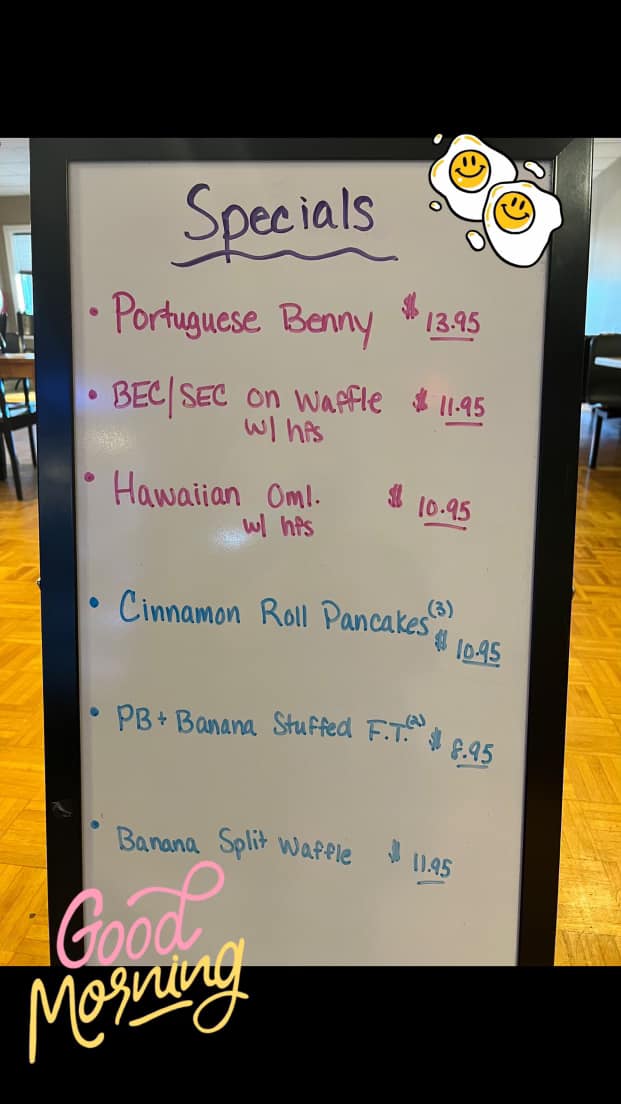 Specials
• Portuguese Benny $13.95
• BEC/SEC on Waffle $11.95
w/ hfs
• Hawaiian Oml. $10.95
w/ hfs
• Cinnamon Roll Pancakes (3)
$10.95
• PB + Banana Stuffed F.T. (2) $8.95
• Banana Split Waffle $11.95
Good
Morning